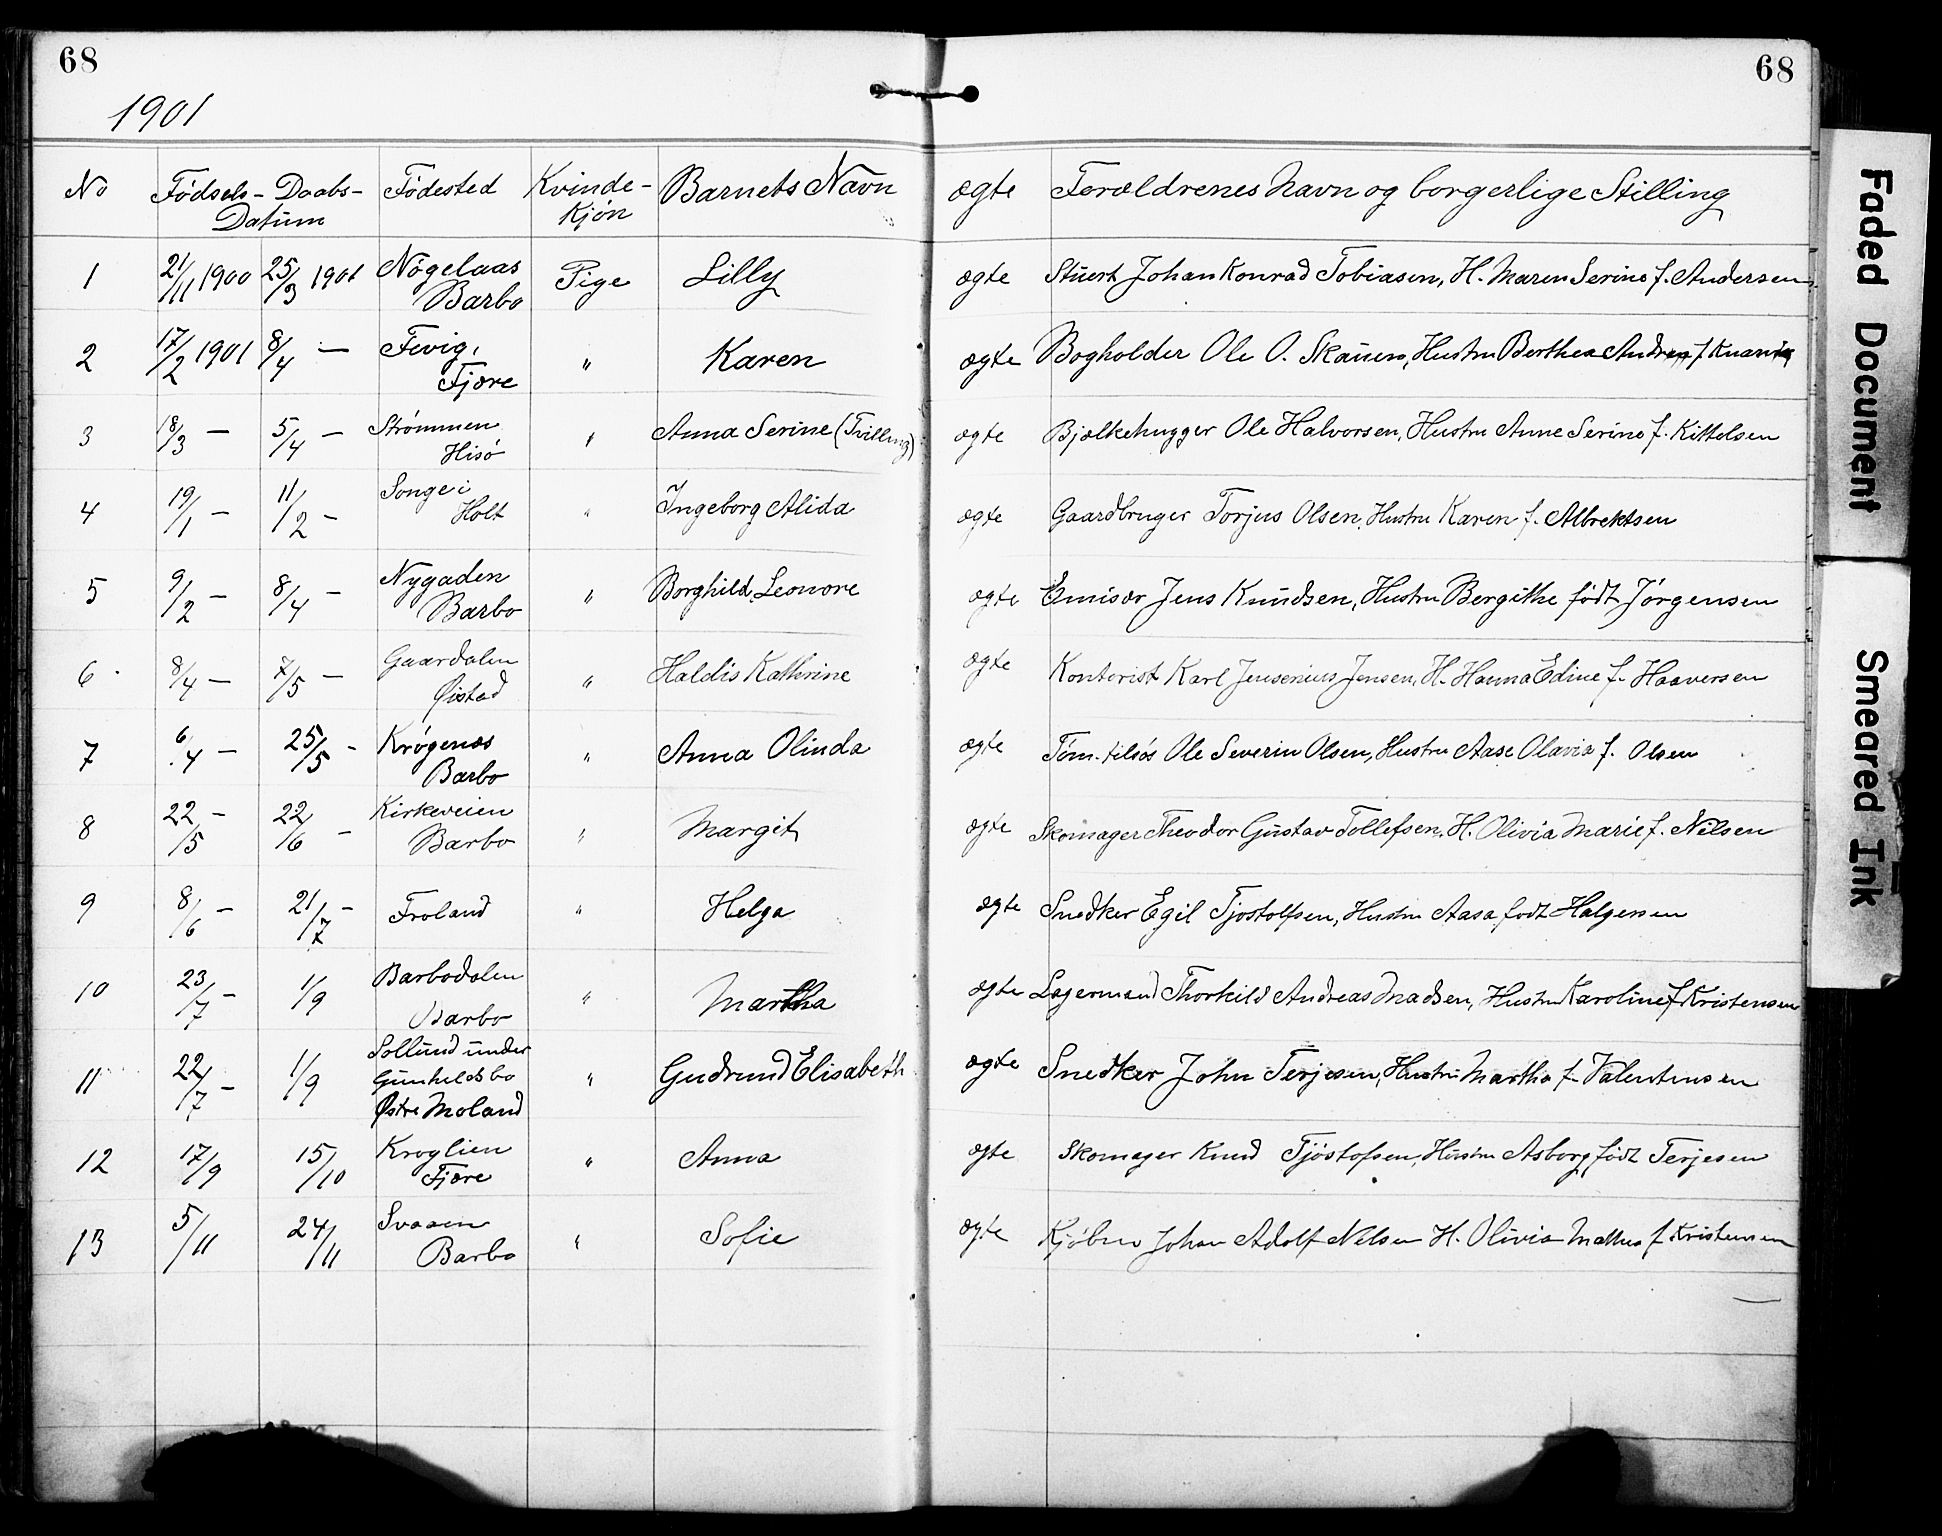 68
68
1901
No Fødsels- Daabs- Fødested Kvinde- Barnets Navn ægte Forældrenes Navn og borgerlige Stilling
Datum Kjøn
1 21/11 1900 25/3 1901 Nøgelaas Pige Lilly ægte Stuert Johan Konrad Tobiasen, H. Maren Serine f. Andersen
Barbo
2 17/2 1901 8/4 — Fevig, " Karen ægte Bogholder Ole O. Skauen, Hustru Berthea Andrea f.
Fjære
3 18/3 — 5/4 — Strømmen " Anna Serine (Tvilling) ægte Bjælkehugger Ole Halvorsen, Hustru Anne Serine f. Kittelsen
Hisö
4 19/1 — 11/2 — Songe i " Ingeborg Alida ægte Gaardbruger Torjus Olsen, Hustru Karen f. Albrektsen
Holt
5 9/2 — 8/4 — Nygaden " Borghild Leonore ægte Emisær Jens Knudsen, Hustru Bergithe født Jørgensen
Barbo
6 8/4 — 7/5 — Gaardalen " Haldis Kathrine ægte Kontorist Karl Jensenius Jensen, H. Hanna Edine f. Haaversen
Øistad
7 6/4 — 25/5 - Krøgenæs " Anna Olinda ægte Töm. tilsös Ole Severin Olsen, Hustru Aase Olavia f. Olsen
Barbo
8 22/5 — 22/6 — Kirkeveien " Margit ægte Skomager Theodor Gustav Tollefsen, H. Olivia Marie f. Nilsen
Barbo
9 8/6 — 21/7 — Froland " Helga ægte Snedker Egil Tjostolfsen, Hustru Aasa født Halgersen
10 23/7 — 1/9 Barbodalen " Martha ægte Lagermand Thorkild Andreas Madsen, Hustru Karoline f. Kristensen
Barbo
11 22/7 — 1/9 Sollund under " Gudrund Elisabeth ægte Snedker John Terjesen, Hustru Martha f. Valentinsen
Gunheldsbo
Østre Moland
12 17/9 15/10 Kroglien " Anna ægte Skomager Knud Tjöstofsen, Hustru Asborg født Terjesen
Fjære
13 5/11 24/11 Svaaen " Sofie ægte Kjøbm Johan Adolf Nilsen H. Olivia f. Kristensen
Barbo
Faded Document
Smeared Ink